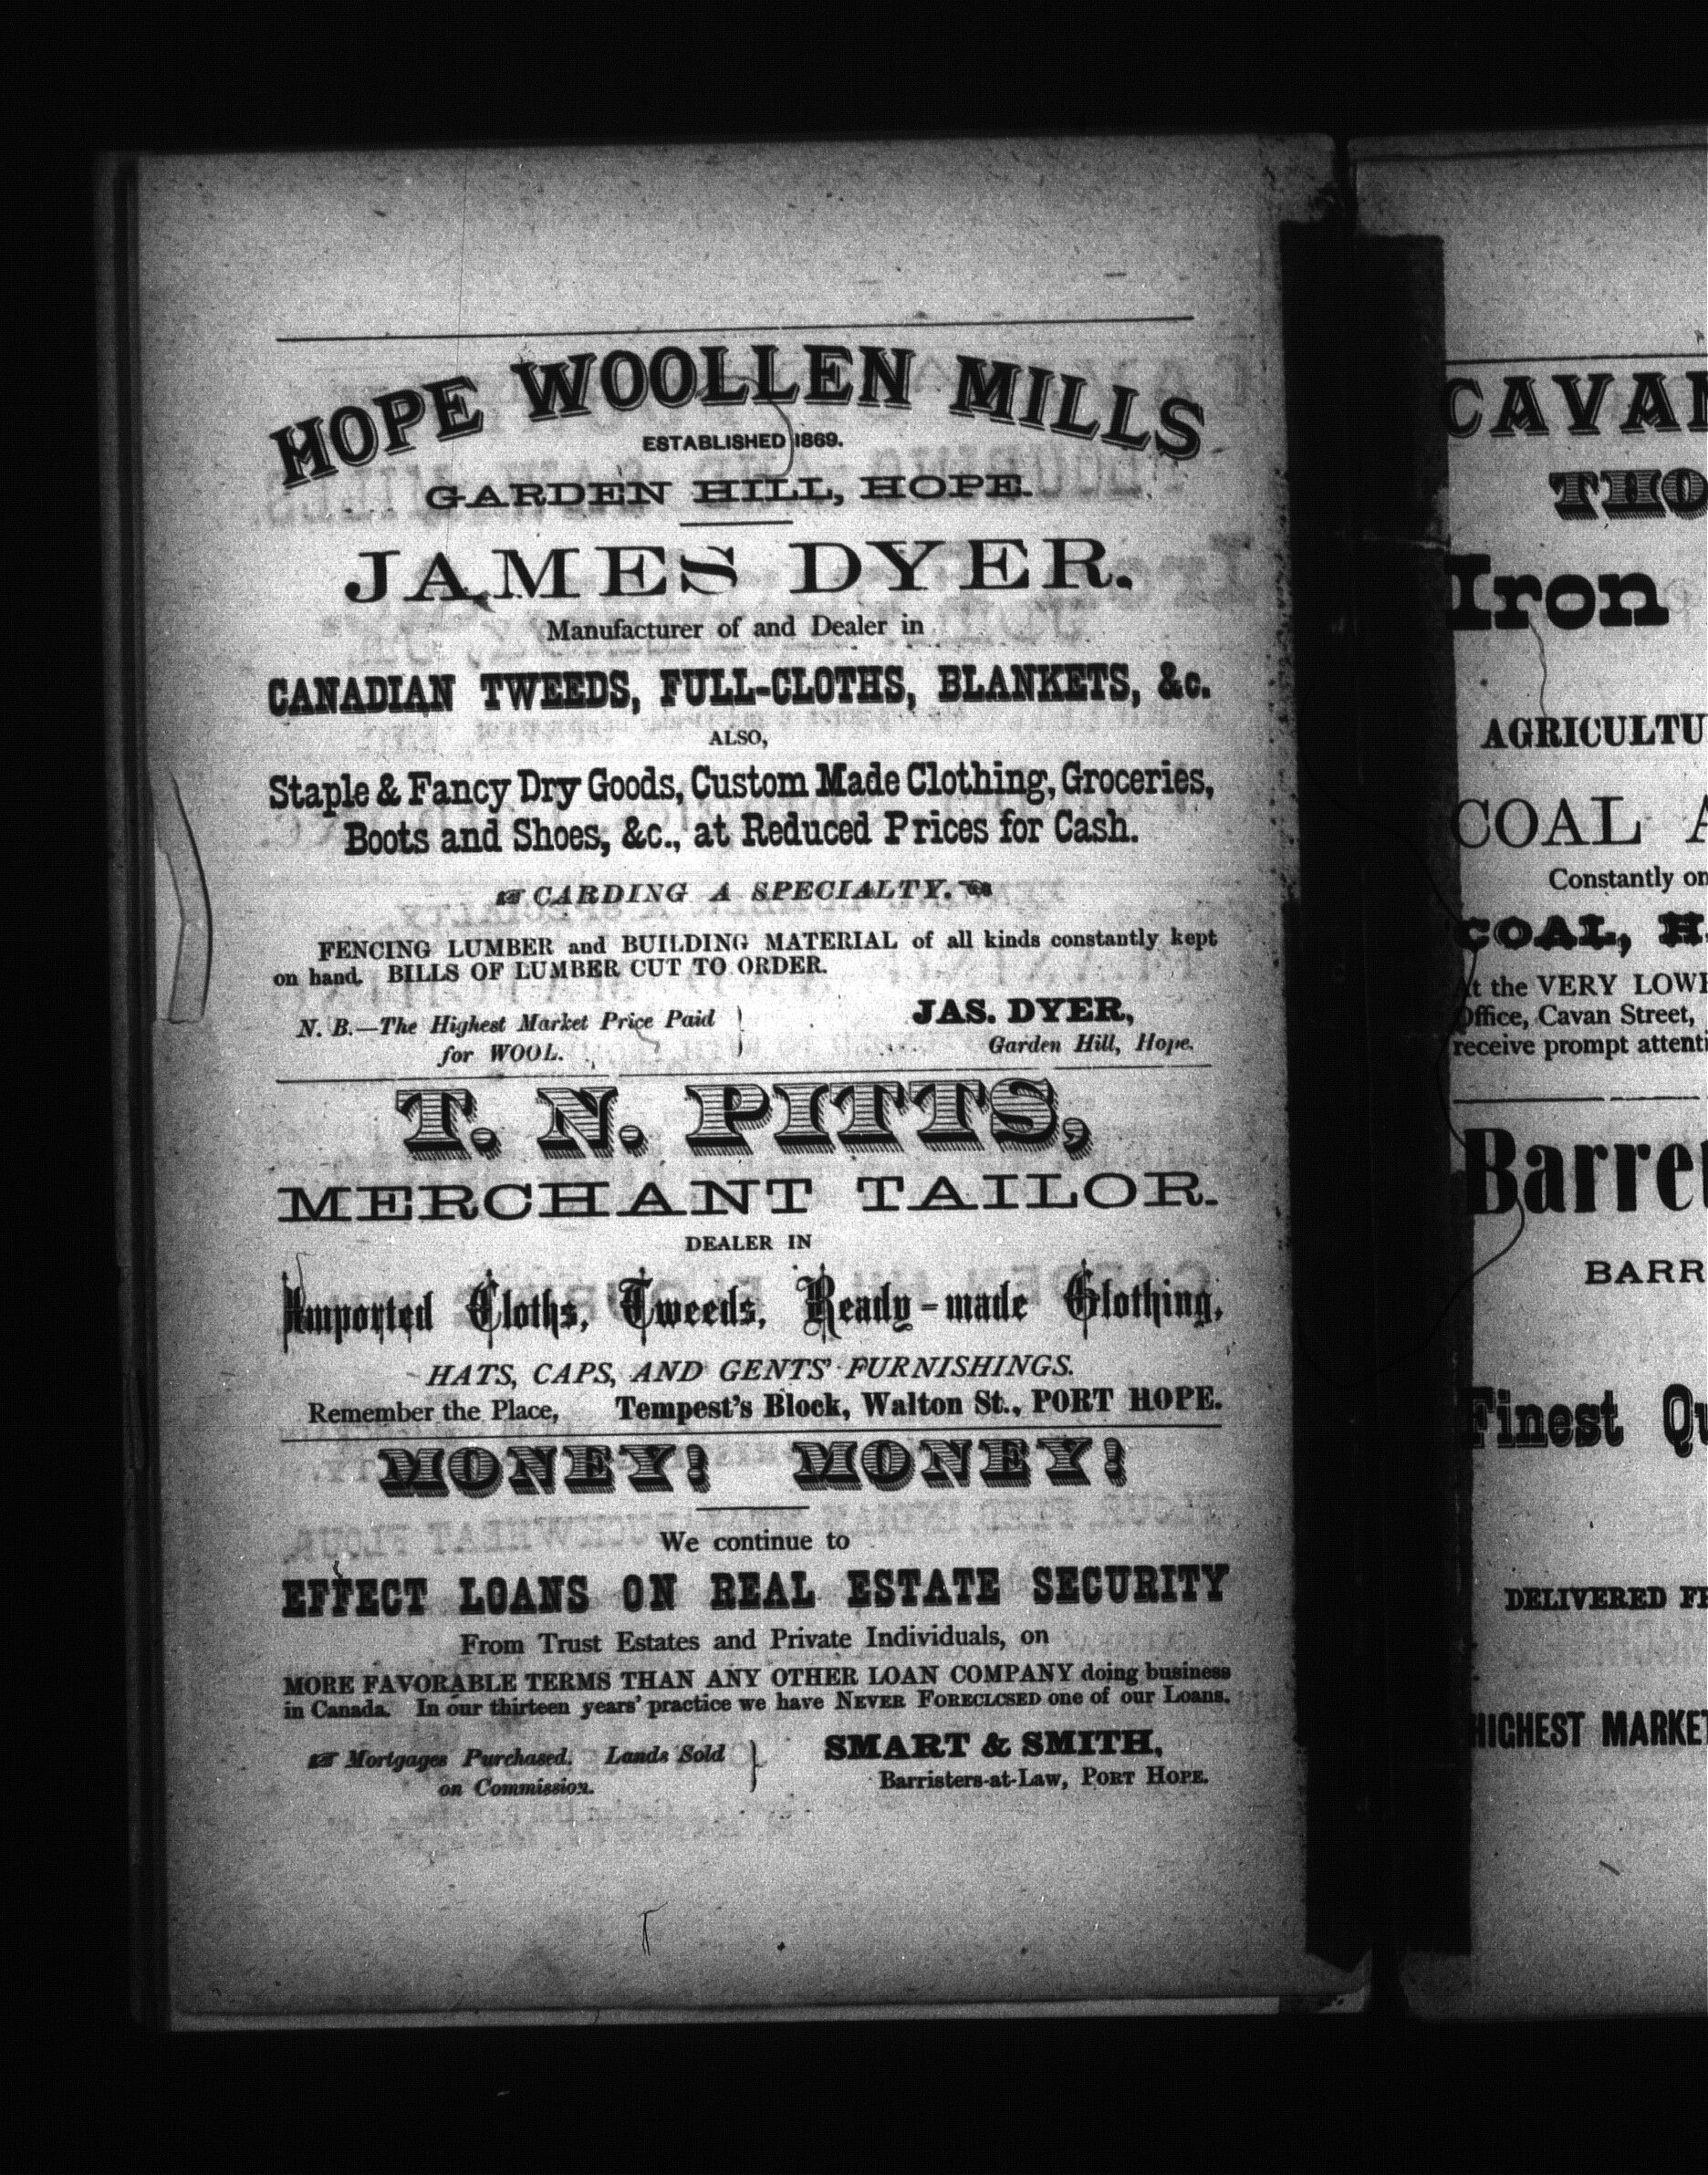 HOPE WOOLLEN MILLS
ESTABLISHED 1869.
GARDEN HILL, HOPE.
JAMES DYER.
Manufacturer of and Dealer in
CANADIAN TWEEDS, FULL-CLOTHS, BLANKETS, &c.
ALSO,
Staple & Fancy Dry Goods, Custom Made Clothing, Groceries,
Boots and Shoes, &c., at Reduced Prices for Cash.
☞ CARDING A SPECIALTY. ☜
FENCING LUMBER and BUILDING MATERIAL of all kinds constantly kept
on hand. BILLS OF LUMBER CUT TO ORDER.
N. B.—The Highest Market Price Paid
for WOOL.
JAS. DYER,
Garden Hill, Hope.
T. N. PITTS,
MERCHANT TAILOR.
DEALER IN
Imported Cloths, Tweeds, Ready-made Clothing,
HATS, CAPS, AND GENTS' FURNISHINGS.
Remember the Place, Tempest's Block, Walton St., PORT HOPE.
MONEY! MONEY!
We continue to
EFFECT LOANS ON REAL ESTATE SECURITY
From Trust Estates and Private Individuals, on
MORE FAVORABLE TERMS THAN ANY OTHER LOAN COMPANY doing business
in Canada. In our thirteen years' practice we have NEVER FORECLOSED one of our Loans.
☞ Mortgages Purchased. Lands Sold
on Commission.
SMART & SMITH,
Barristers-at-Law, PORT HOPE.
CAVAN
THO
Iron
AGRICULTU
COAL A
Constantly on
COAL, H
At the VERY LOW
Office, Cavan Street,
receive prompt attenti
Barret
BARR
Finest Qu
DELIVERED FR
HIGHEST MARKET